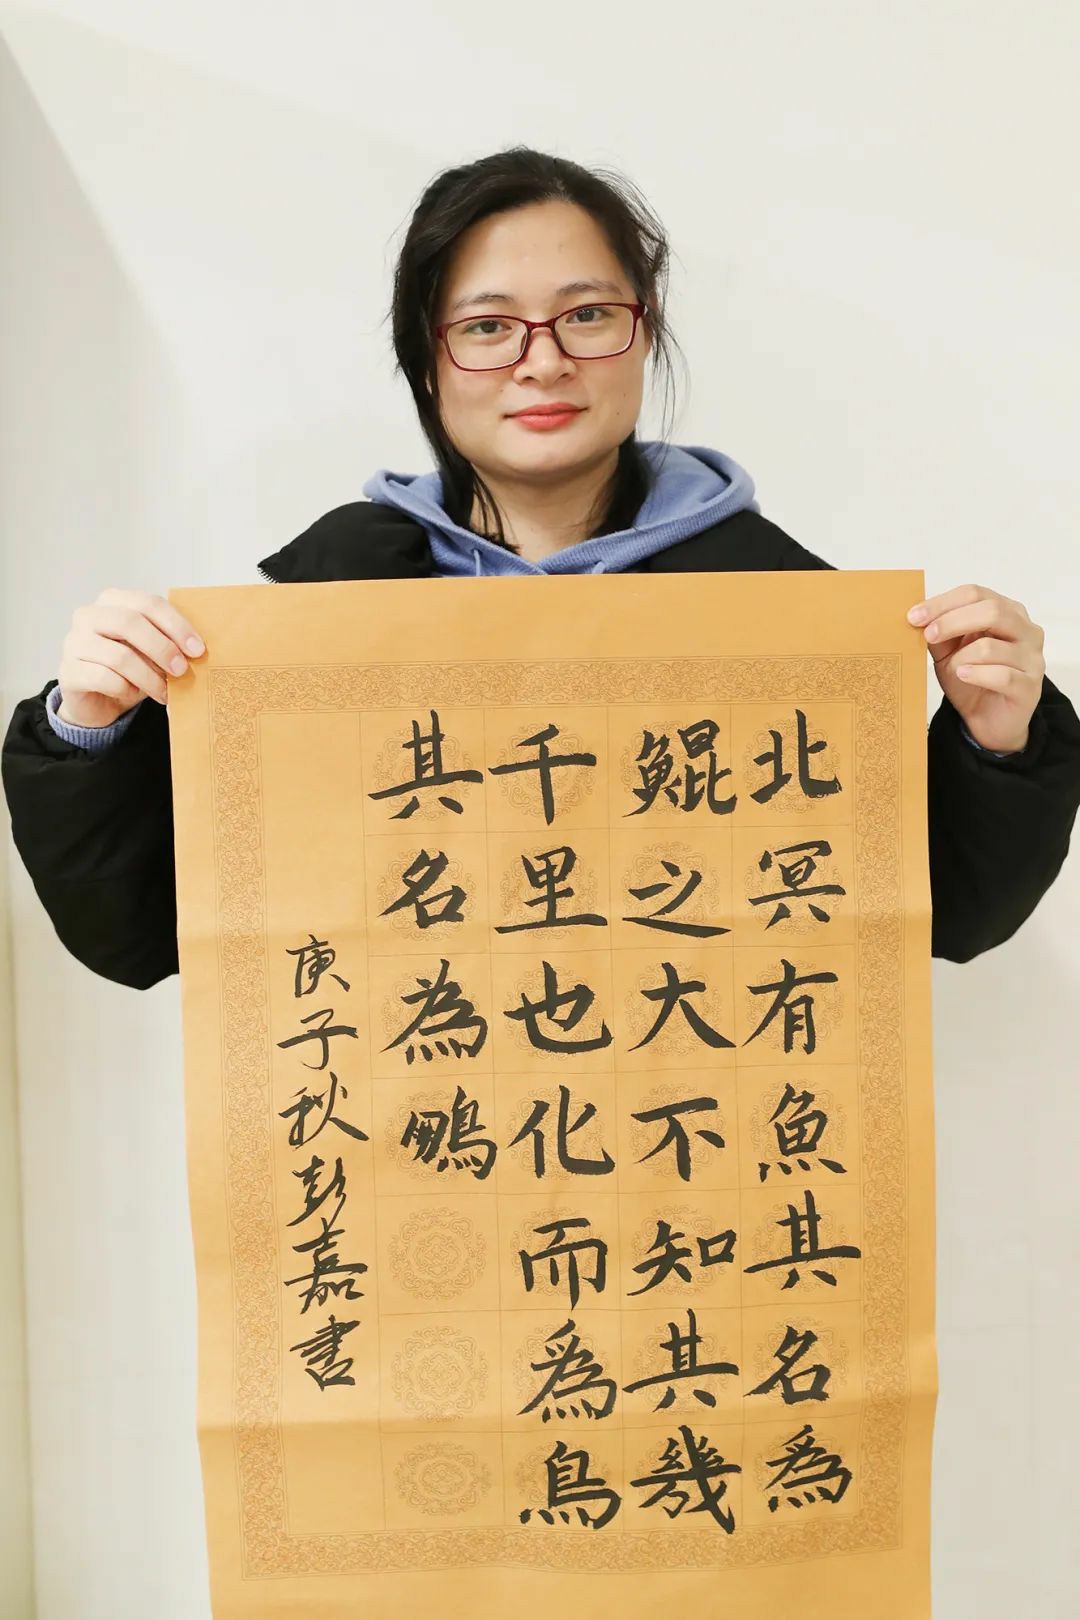 北冥有魚其名為
鯤之大不知其幾
千里也化而為鳥
其名為鵬
庚子秋彭嘉書